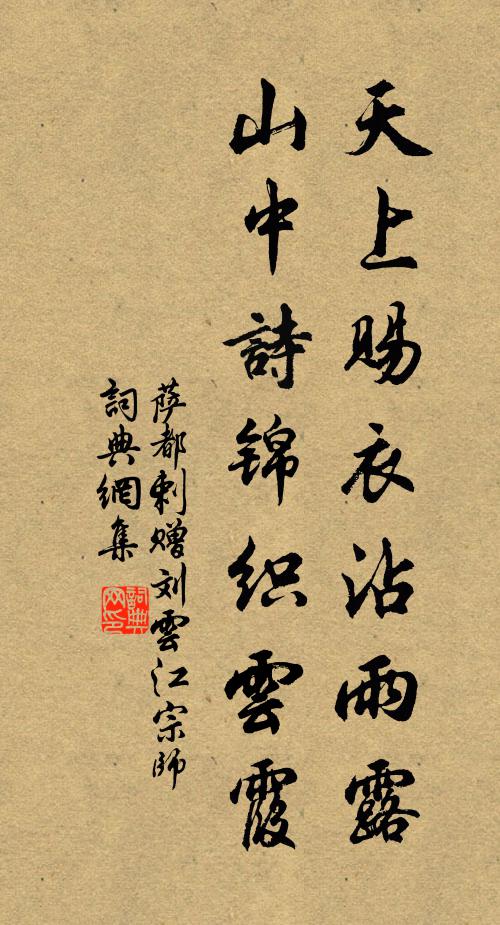 天上賜衣沾雨露
山中詩锦织雲霞
萨都剌赠刘雲江宗師
詞典網集
詞典
网印